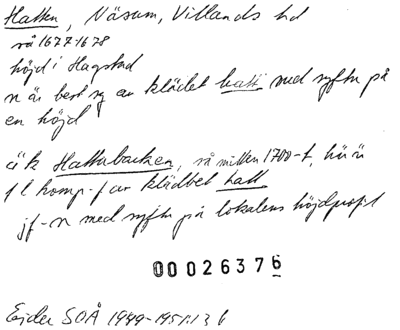 Hatten, Näsum, Villands hd
så 1677-1678
höjd i Hagstad
n är best sg av klädet hatt med syftn på
en höjd
äk Hattabacken, så mitten 1700-t, här är
fl komp-f av klädbet hatt
jf-n med syftn på lokalens höjdprofil
00026376
Ejder SOÅ 1949-1951:1 36